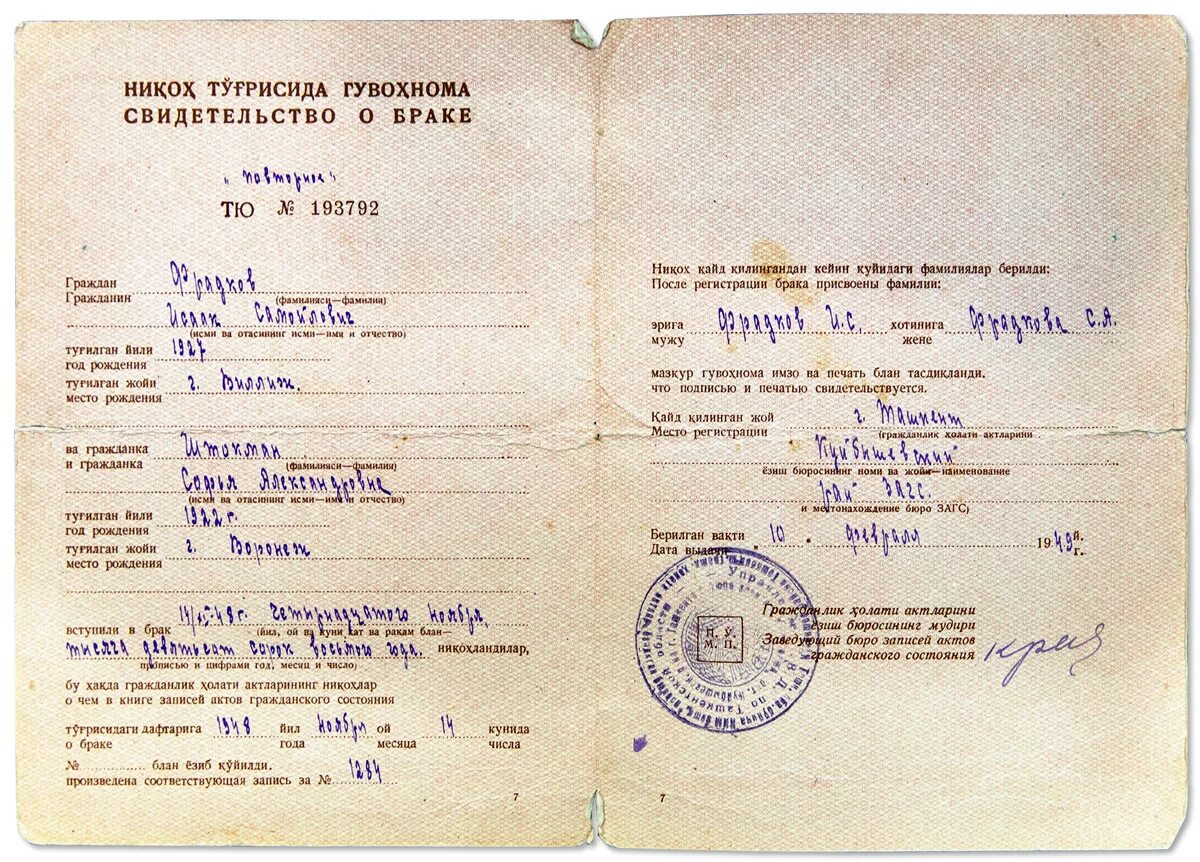 НИҚОҲ ТЎҒРИСИДА ГУВОҲНОМА
СВИДЕТЕЛЬСТВО О БРАКЕ
„повторное"
ТЮ № 193792
Граждан
Гражданин Фрадков
(фамилияси—фамилия)
Исаак Самойлович
(исми ва отасининг исми—имя и отчество)
туғилган йили 1927
год рождения
туғилган жойи г. Виллиж.
место рождения
ва гражданка Штокман
и гражданка (фамилияси—фамилия)
Софья Александровна
(исми ва отасининг исми—имя и отчество)
туғилган йили 1922 г.
год рождения
туғилган жойи г. Воронеж
место рождения
14/XI-48 г. Четырнадцатого ноября,
вступили в брак (йил, ой ва куни хат ва рақам блан—
тысяча девятьсот сорок восьмого года. никоҳландилар,
прописью и цифрами год, месяц и число)
бу хақда гражданлик ҳолати актларининг никоҳлар
о чем в книге записей актов гражданского состояния
тўғрисидаги дафтарига 1948 йил ноября ой 14 кунида
о браке года месяца числа
№ блан ёзиб қўйилди.
произведена соответствующая запись за № 1284
7
Никоҳ қайд қилингандан кейин қуйидаги фамилиялар берилди:
После регистрации брака присвоены фамилии:
эрига Фрадков И.С. хотинига Фрадкова С.А.
мужу жене
мазкур гувоҳнома имзо ва печать блан тасдиқланди.
что подписью и печатью свидетельствуется.
Қайд қилинган жой г. Ташкент
Место регистрации (гражданлик ҳолати актларини
Куйбышевский
ёзиш бюросининг номи ва жойи—наименование
рай ЗАГС.
и местонахождение бюро ЗАГС)
Берилган вақти 10 февраля 1949 й.
Дата выдачи г.
Гражданлик ҳолати актларини
ёзиш бюросининг мудири
Заведующий бюро записей актов
гражданского состояния
П. Ў.
М. П.
7